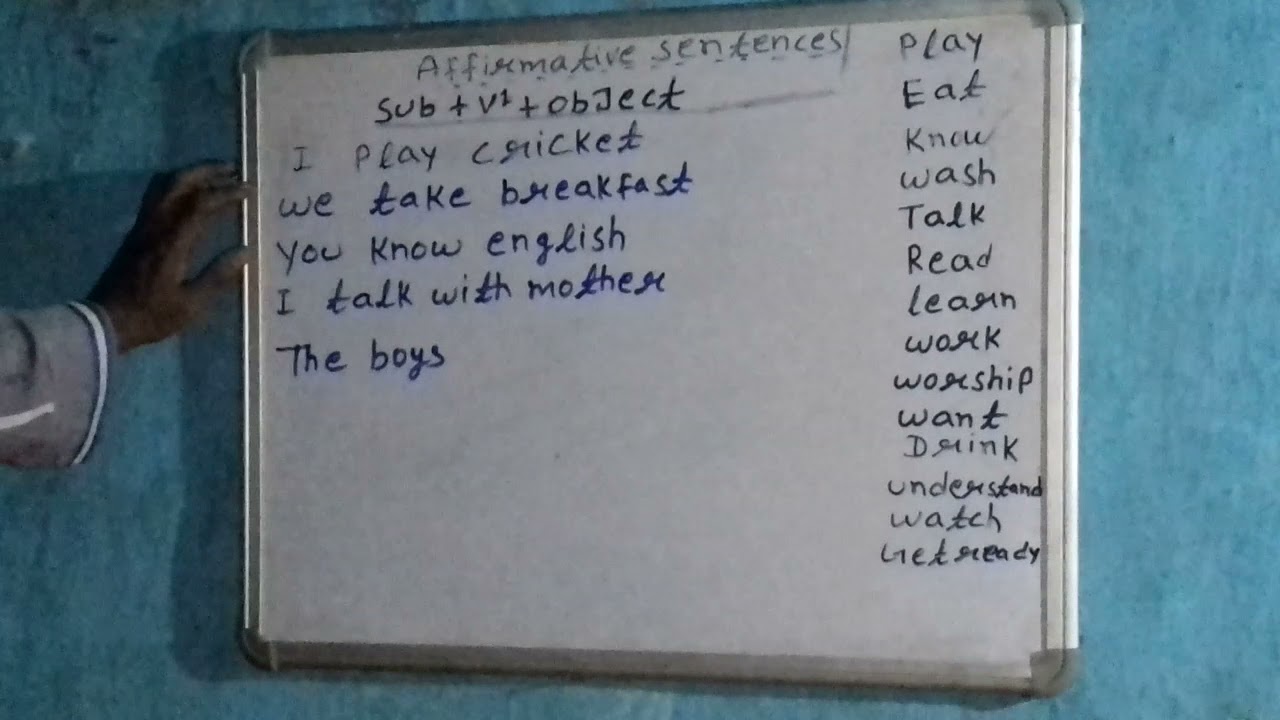 Affirmative sentences
Sub + V¹ + Object
I Play cricket
we take breakfast
You know english
I talk with mother
The boys
Play
Eat
Know
wash
Talk
Read
learn
work
worship
want
Drink
understand
watch
Get ready